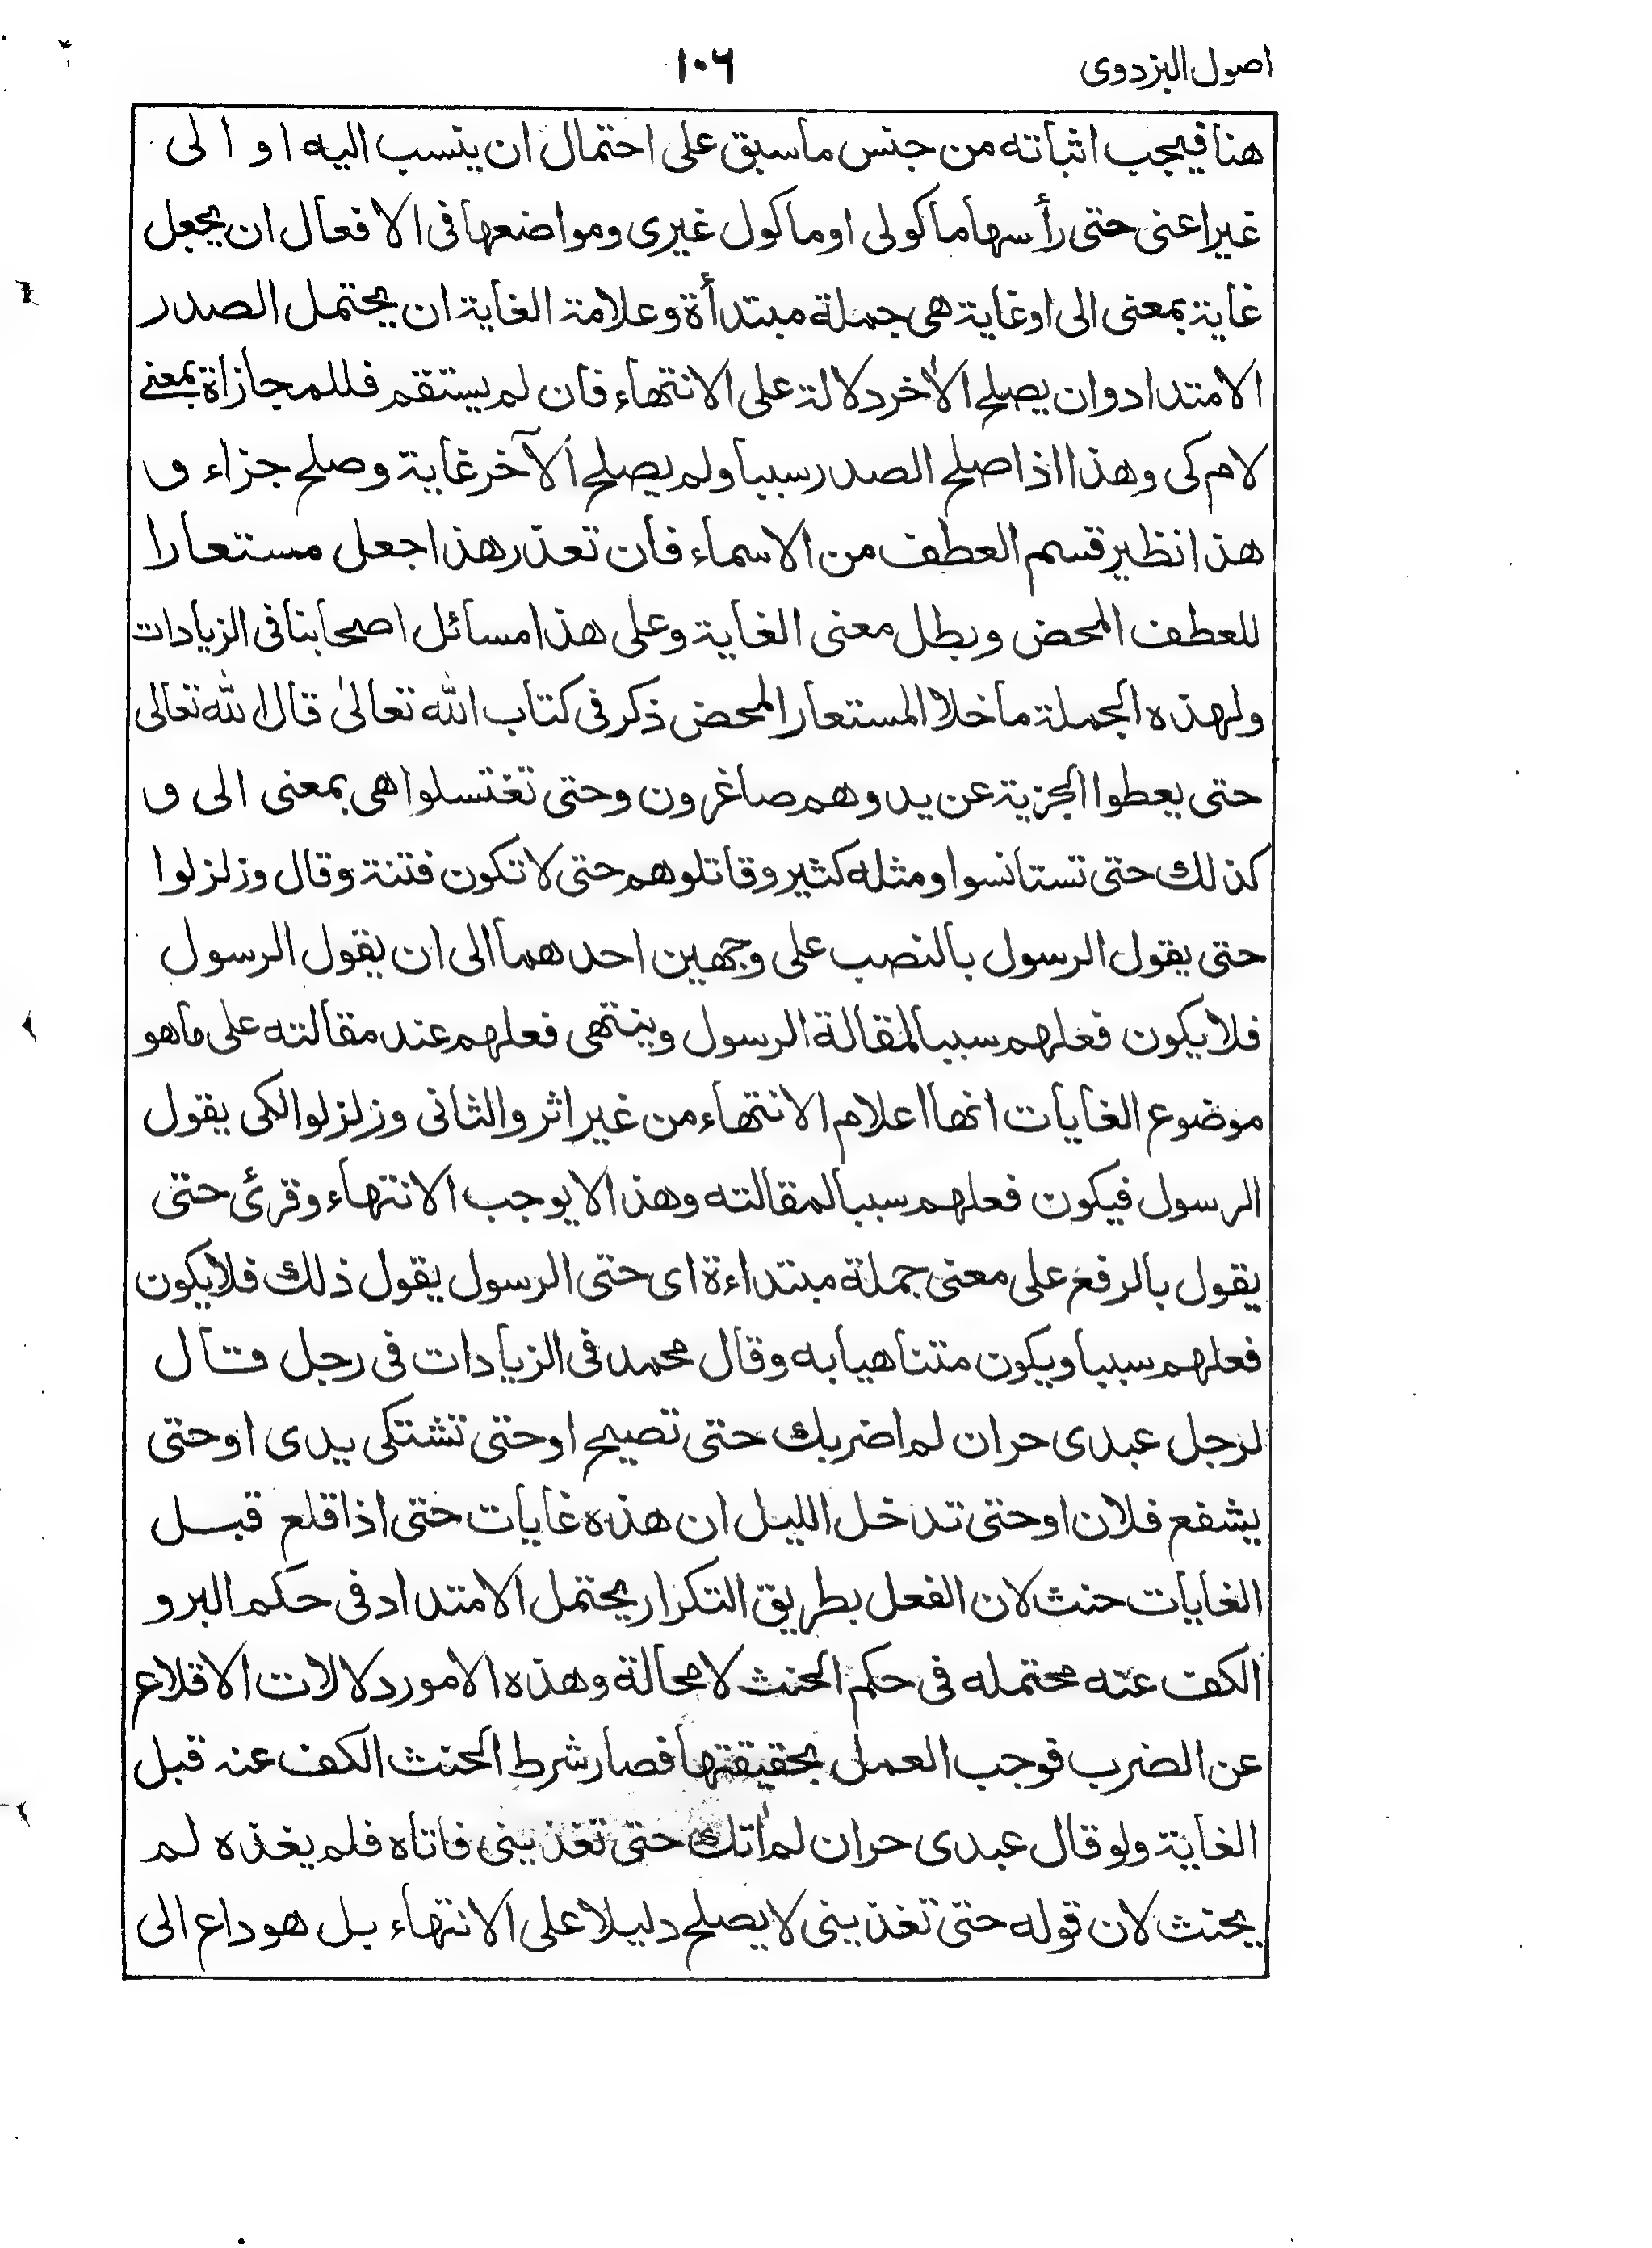 اصول البزدوى
١٠٦
هنا فيجب اثباته من جنس ما سبق على احتمال ان ينسب اليه او الى
غيرا عنى حتى رأسها ماكولى او ماكول غيرى ومواضعها فى الافعال ان يجعل
غاية بمعنى الى او غاية هى جملة مبتدأة وعلامة الغاية ان يحتمل الصدر
الامتداد وان يصلح الأخر دلالة على الانتهاء فان لم يستقم فللمجازاة بمعنے
لام كى وهذا اذا صلح الصدر سببا ولم يصلح الآخر غاية وصلح جزاء و
هذا نظير قسم العطف من الاسماء فان تعذر هذا جعل مستعارا
للعطف المحض وبطل معنى الغاية وعلى هذا مسائل اصحابنا فى الزيادات
ولهذه الجملة ما خلا المستعار المحض ذكر فى كتاب الله تعالىٰ قال الله تعالى
حتى يعطوا الجزية عن يد وهم صاغرون وحتى تغتسلوا هى بمعنى الى و
كذلك حتى تستانسوا ومثله كثير وقاتلوهم حتى لا تكون فتنة وقال وزلزلوا
حتى يقول الرسول بالنصب على وجهين احدهما الى ان يقول الرسول
فلا يكون فعلهم سببا لمقالة الرسول وينتهى فعلهم عند مقالته على ما هو
موضوع الغايات انها اعلام الانتهاء من غير اثر والثانى وزلزلوا لكى يقول
الرسول فيكون فعلهم سببا لمقالته وهذا لا يوجب الانتهاء وقرئ حتى
يقول بالرفع على معنى جملة مبتداءة اى حتى الرسول يقول ذلك فلا يكون
فعلهم سببا ويكون متناهيا به وقال محمد فى الزيادات فى رجل قال
لرجل عبدى حر ان لم اضربك حتى تصيح او حتى تشتكى يدى او حتى
يشفع فلان او حتى تدخل الليل ان هذه غايات حتى اذا قلع قبل
الغايات حنث لان الفعل بطريق التكرار يحتمل الامتداد فى حكم البر و
الكف عنه محتمله فى حكم الحنث لا محالة وهذه الامور دلالات الاقلاع
عن الضرب فوجب العمل بحقيقتها فصار شرط الحنث الكف عنه قبل
الغاية ولو قال عبدى حر ان لم أتك حتى تغذينى فاتاه فلم يغذه لم
يحنث لان قوله حتى تغذينى لا يصلح دليلا على الانتهاء بل هو داع الى